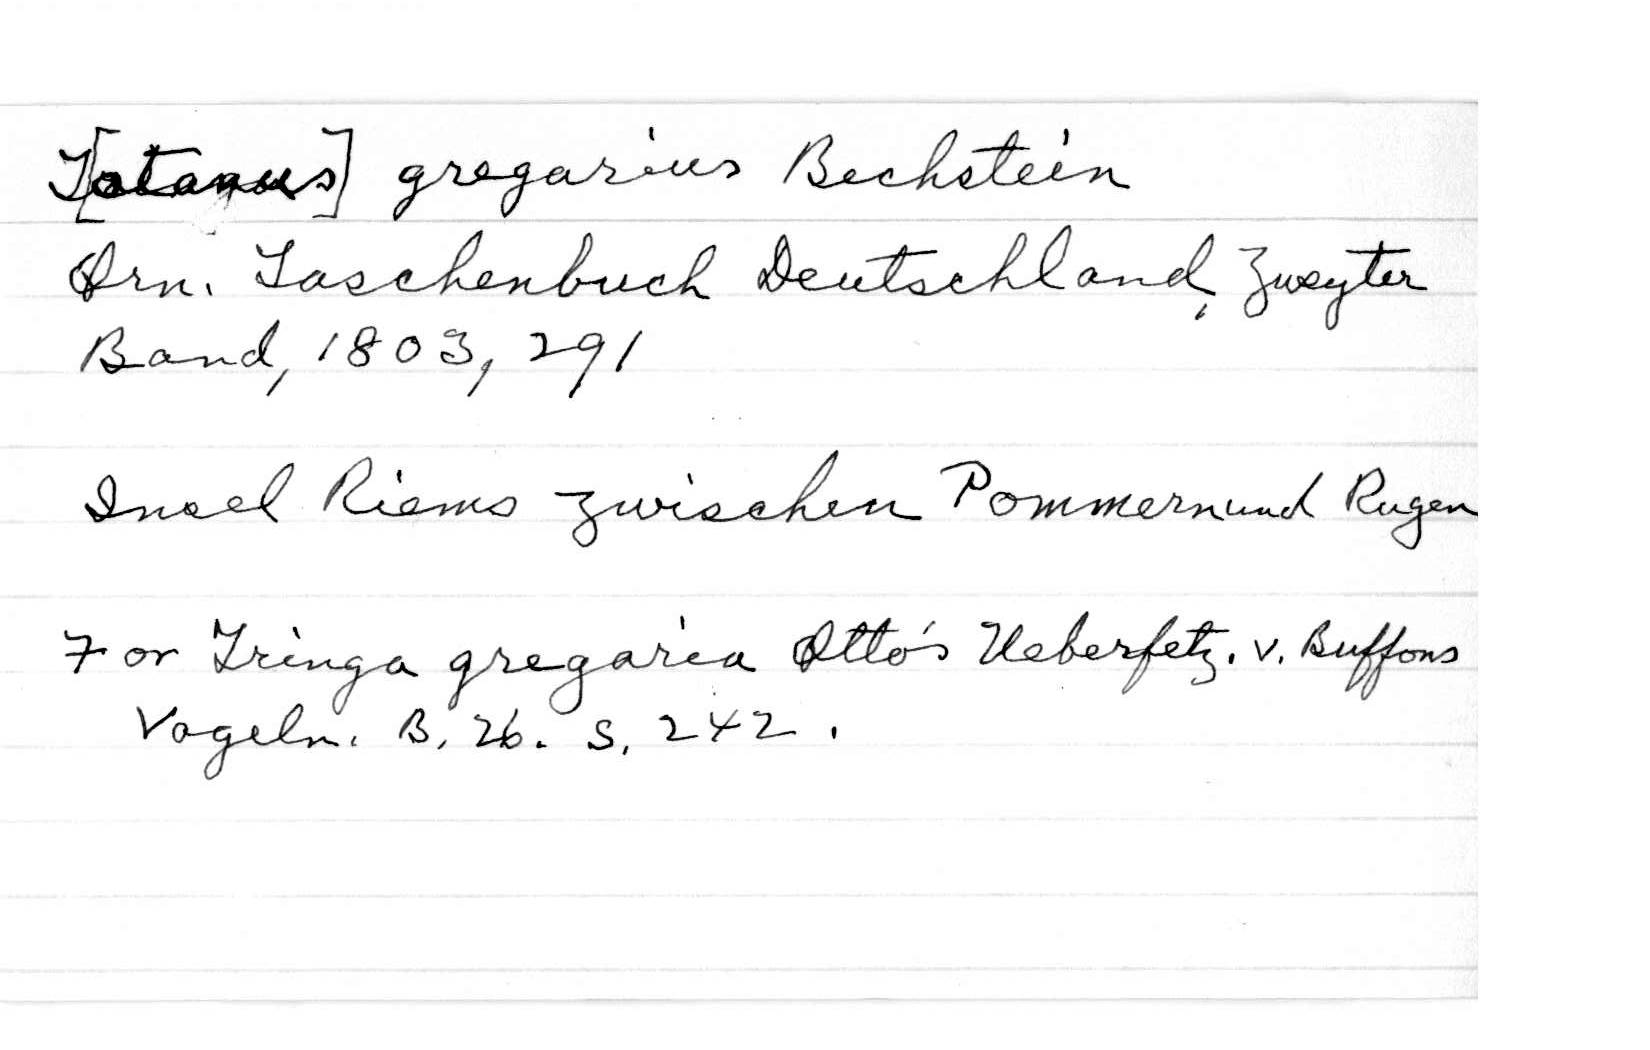 T[otanus] gregarius Bechstein
Orn. Taschenbuch Deutschland, Zweyter
Band, 1803, 291
Insel Riems zwischen Pommern und Rugen
For Tringa gregaria Otto's Ueberfetz. v. Buffons
Vogeln. B. 26. S. 242.